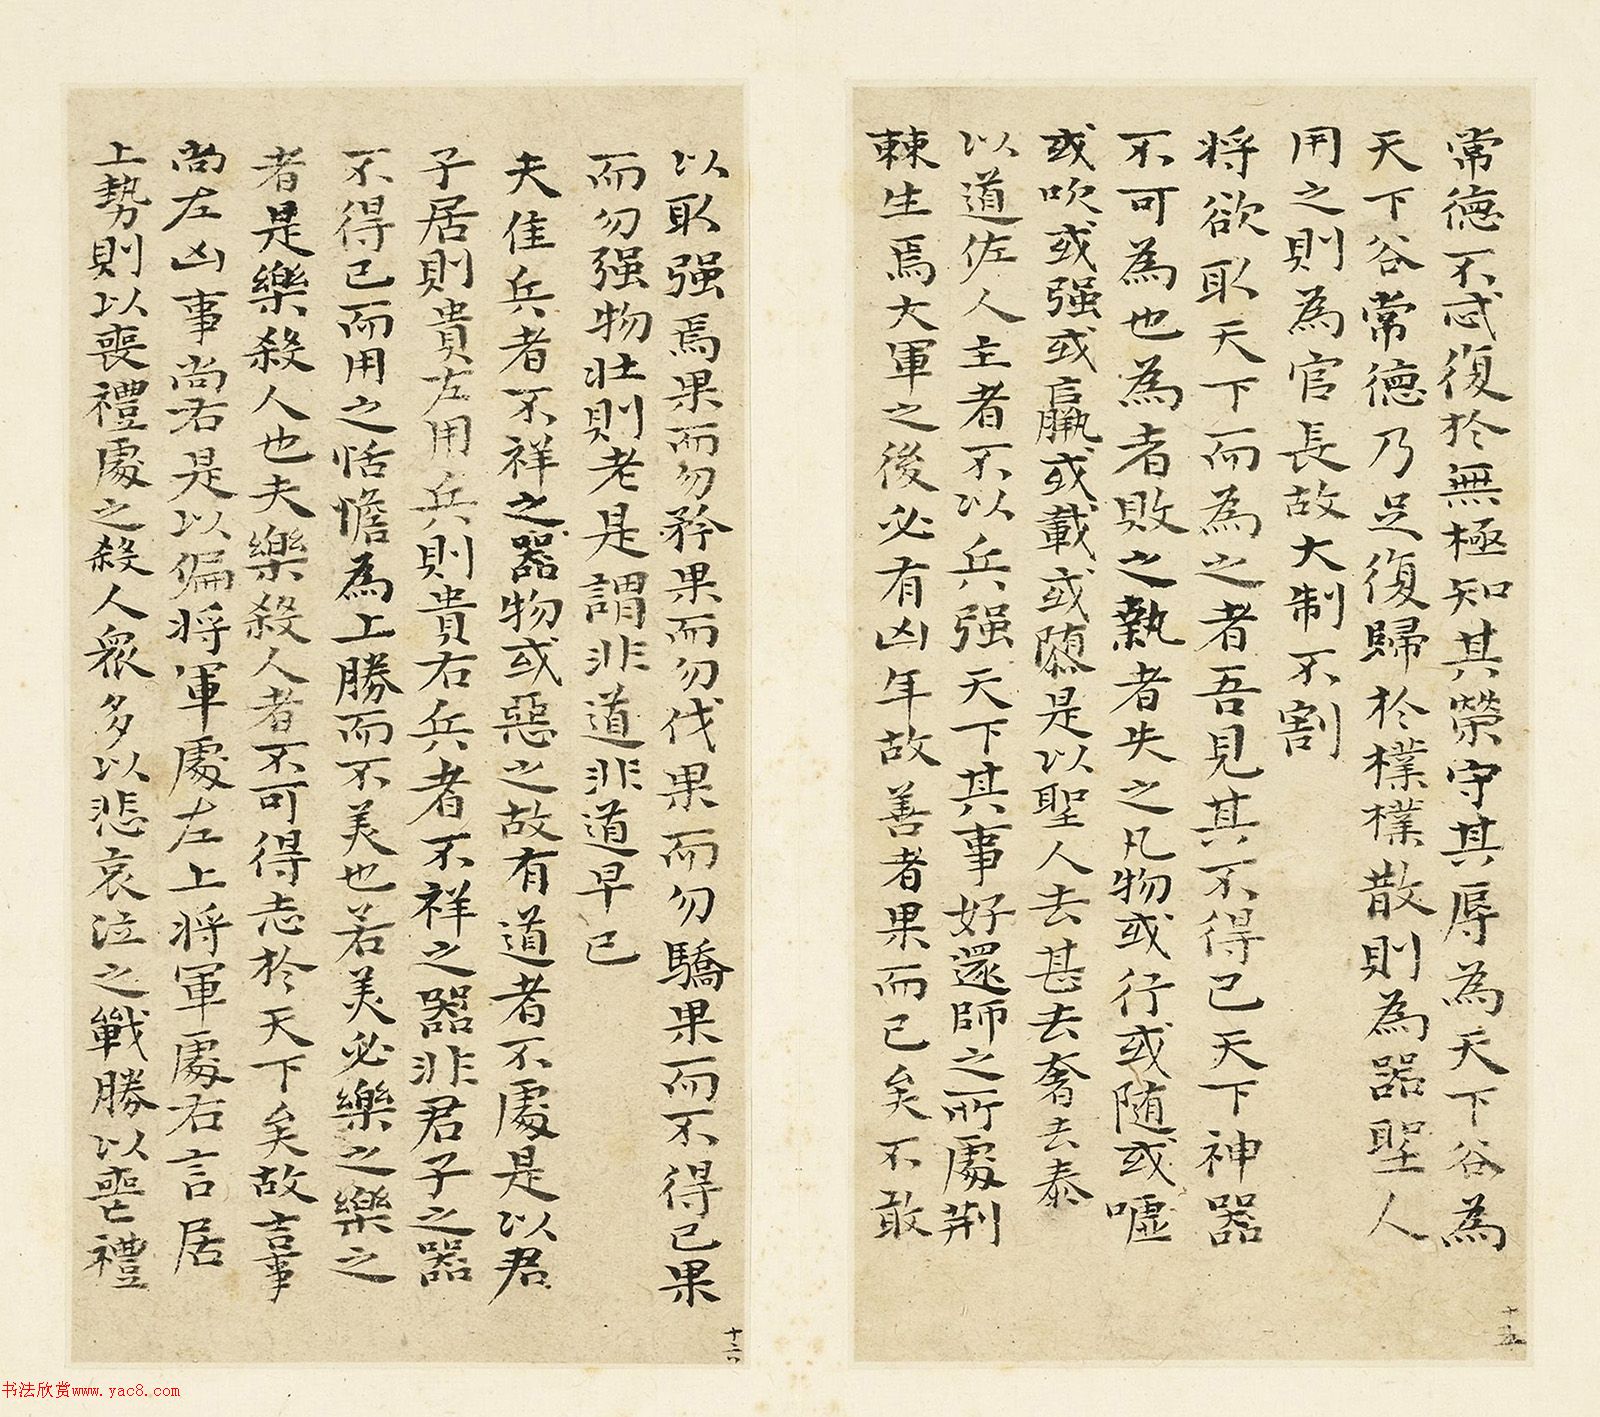 常德不忒復於無極知其榮守其辱為天下谷為
天下谷常德乃足復歸於樸樸散則為器聖人
用之則為官長故大制不割
将欲取天下而為之者吾見其不得已天下神器
不可為也為者敗之執者失之凡物或行或随或噓
或吹或强或羸或載或隳是以聖人去甚去奢去泰
以道佐人主者不以兵强天下其事好還師之所處荆
棘生焉大軍之後必有凶年故善者果而已矣不敢
十五
以取强焉果而勿矜果而勿伐果而勿驕果而不得已果
而勿强物壮則老是謂非道非道早已
夫佳兵者不祥之器物或惡之故有道者不處是以君
子居則貴左用兵則貴右兵者不祥之器非君子之器
不得已而用之恬憺為上勝而不美也若美必樂之樂之
者是樂殺人也夫樂殺人者不可得志於天下矣故吉事
尚左凶事尚右是以偏将軍處左上将軍處右言居
上勢則以喪禮處之殺人衆多以悲哀泣之戰勝以喪禮
十六
书法欣赏www.yac8.com